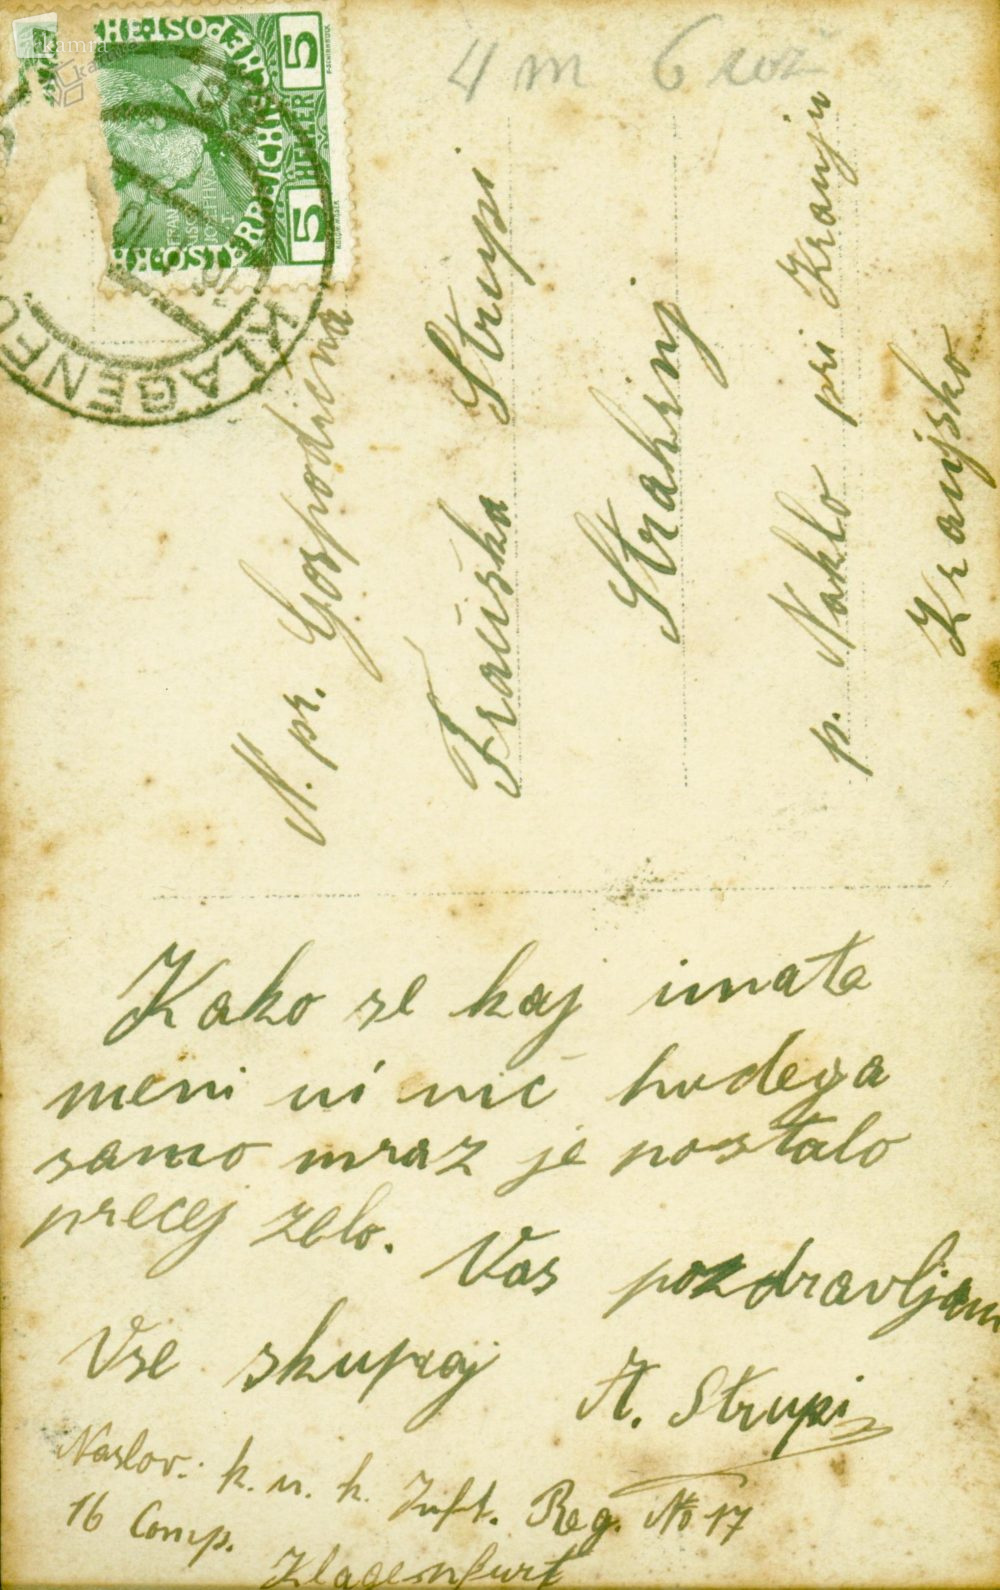 4 m 6 rož
kamra
5 HELLER 5
KLAGENFU
N. pr. Gospodična
Frančiška Strupi
Strahinj
p. Naklo pri Kranju
Kranjsko
Kako se kaj imate
meni ni nič hudega
samo mraz je postalo
precej zelo. Vas pozdravljam
Vse skupaj A. Strupi
Naslov: k. u. k. Inft. Reg. No 17
16 Comp.
Klagenfurt